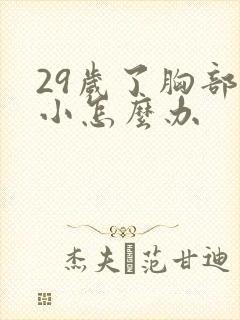 29歲了胸部
小怎麼办
杰夫·范甘迪